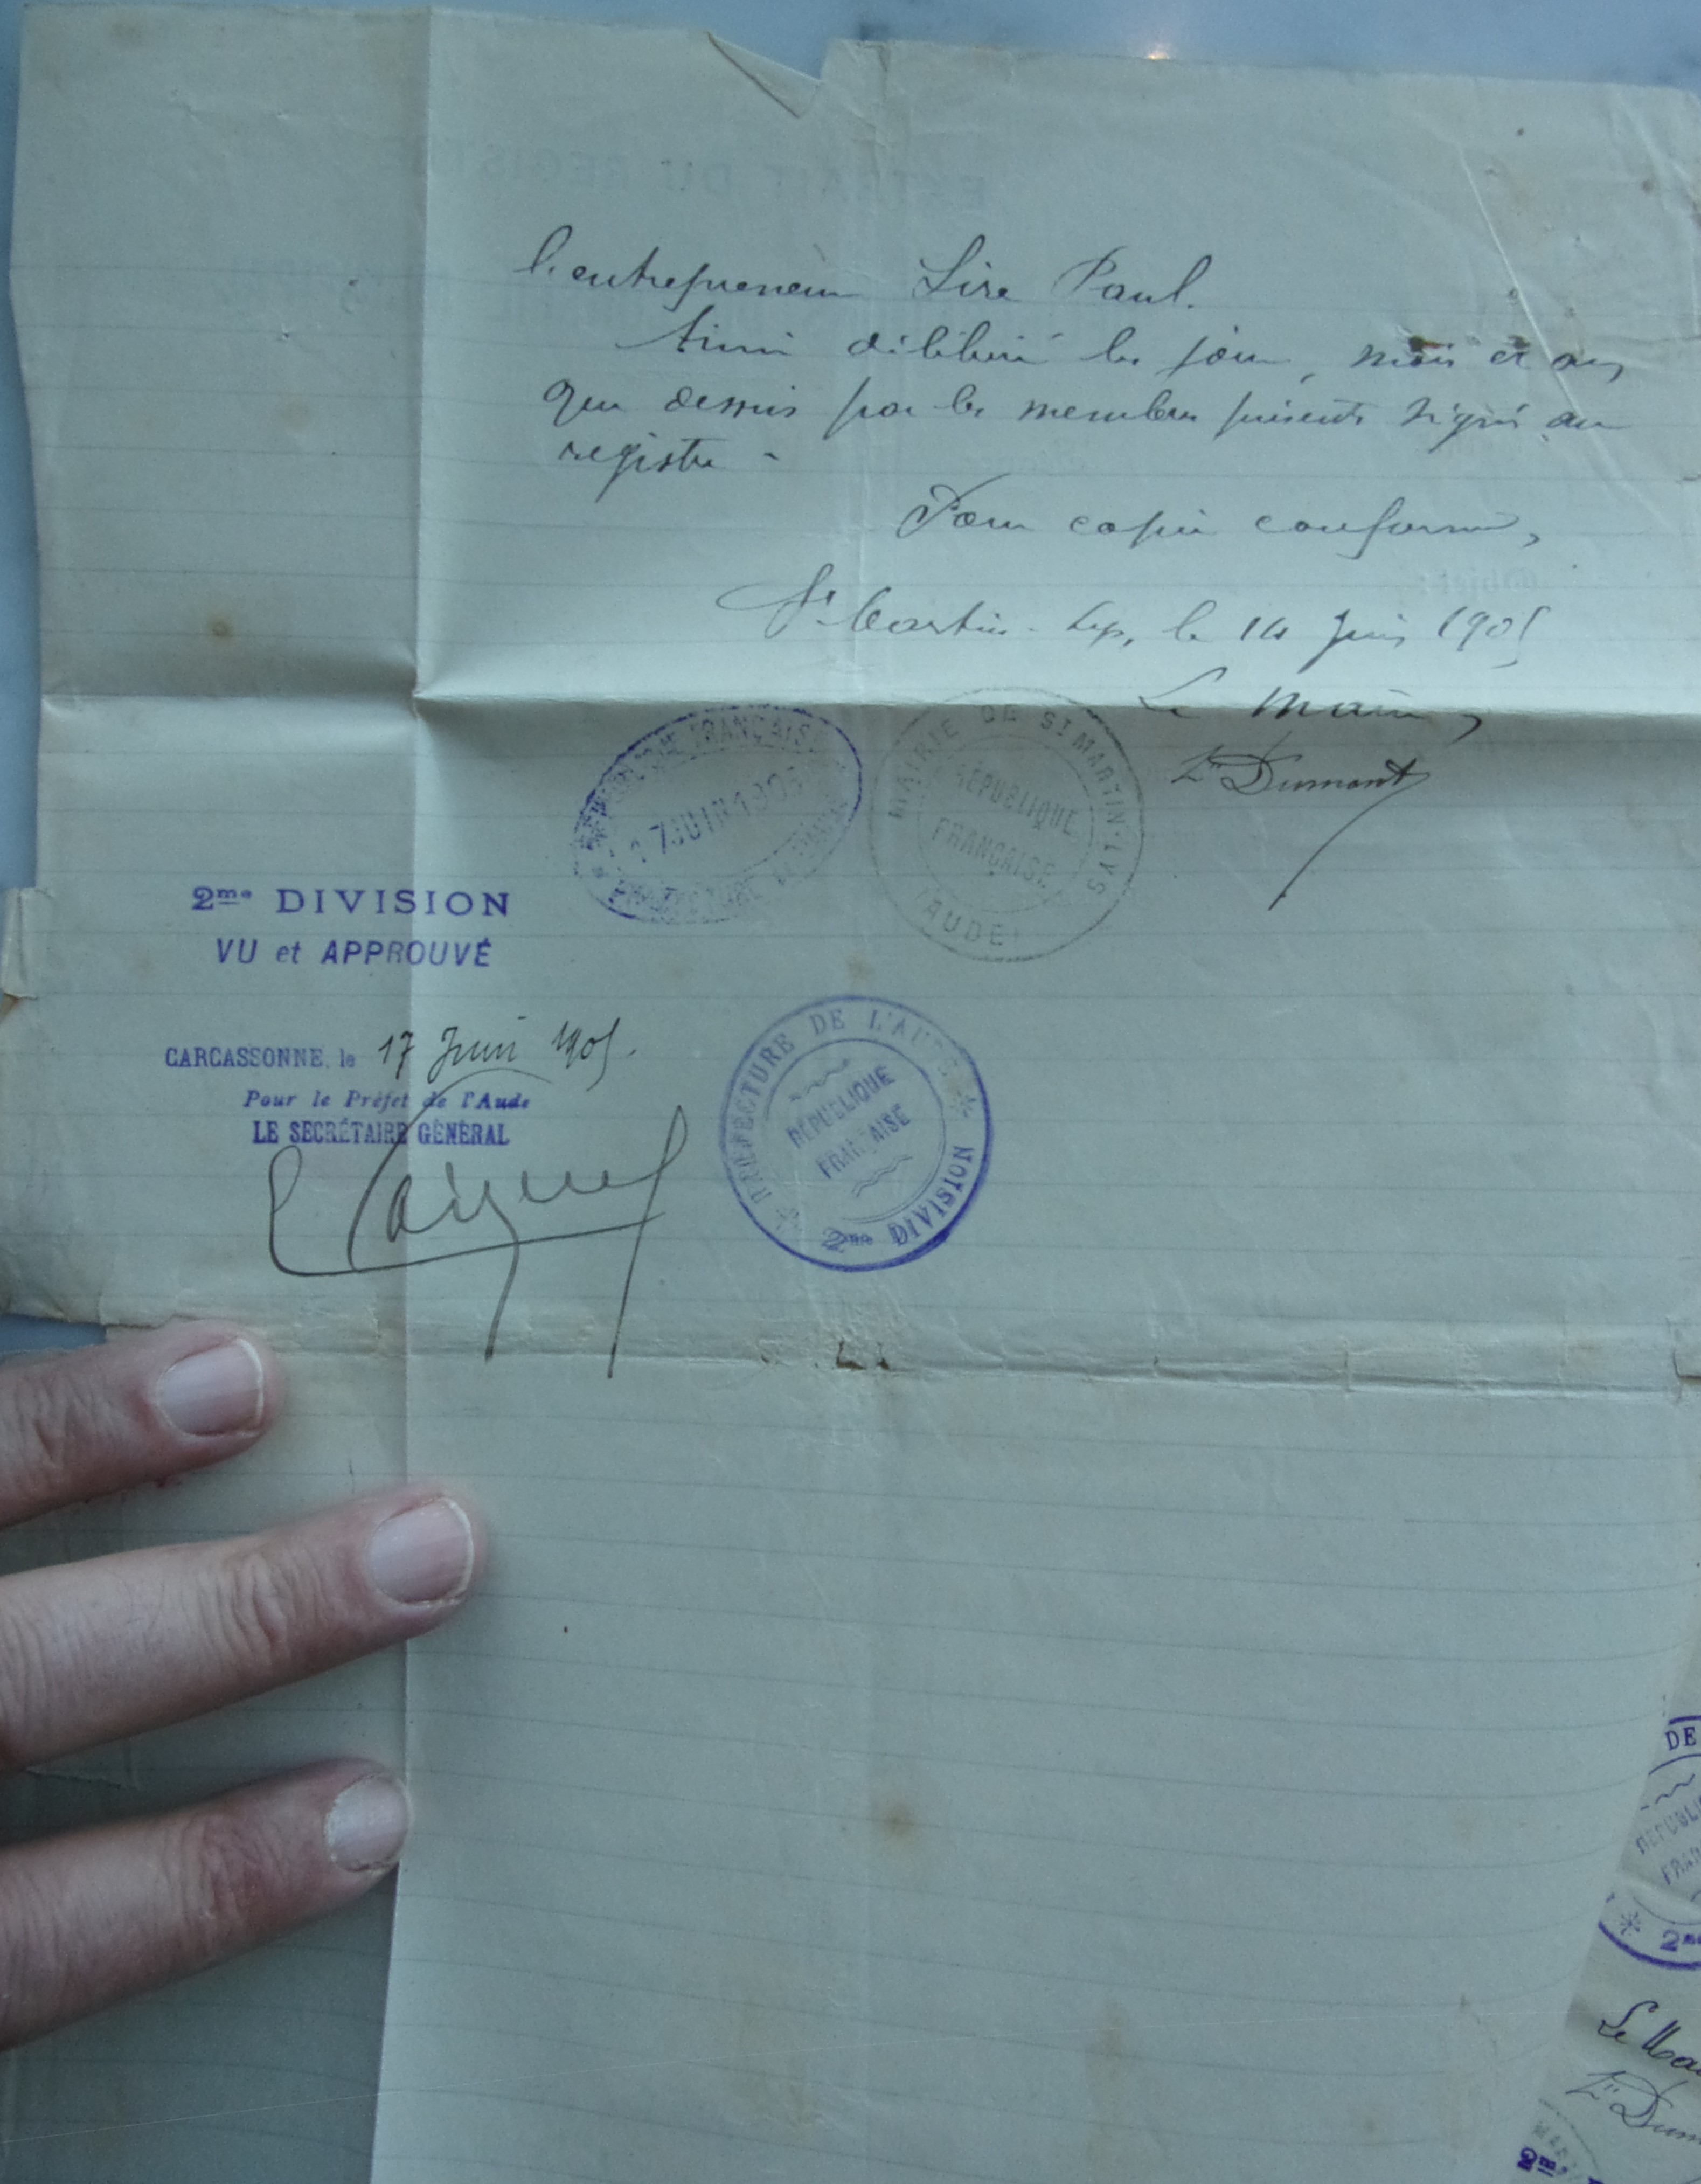 l'entrepreneur Sire Paul.
Ainsi délibéré les jour, mois et an,
que dessus par les membres présents signés au
registre -
Pour copie conforme,
St Martin-Lys, le 14 Juin 1905
Le Maire,
Dumont
RÉPUBLIQUE FRANÇAISE
17 JUIN 1905
PRÉFECTURE DE L'AUDE
MAIRIE DE St MARTIN-LYS
RÉPUBLIQUE
FRANÇAISE
(AUDE)
2me DIVISION
VU et APPROUVÉ
CARCASSONNE, le 17 Juin 1905.
Pour le Préfet de l'Aude
LE SECRÉTAIRE GÉNÉRAL
PRÉFECTURE DE L'AUDE
RÉPUBLIQUE
FRANÇAISE
2me DIVISION
EXTRAIT DU REGIS
DE
RÉPUBLI
FRAN
2me
Le Ma
Dum
2me